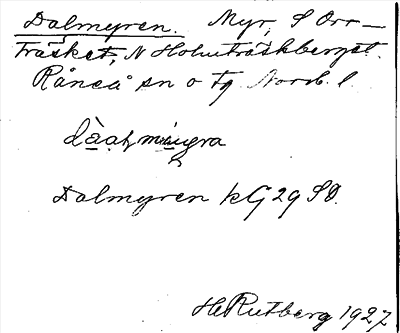 Dalmyren. Myr, S Orr-
träsket, N Holmträskberget.
Råneå sn o tg Norrb. l.
Dalmyren kG 29 SO.
H Rutberg 1927